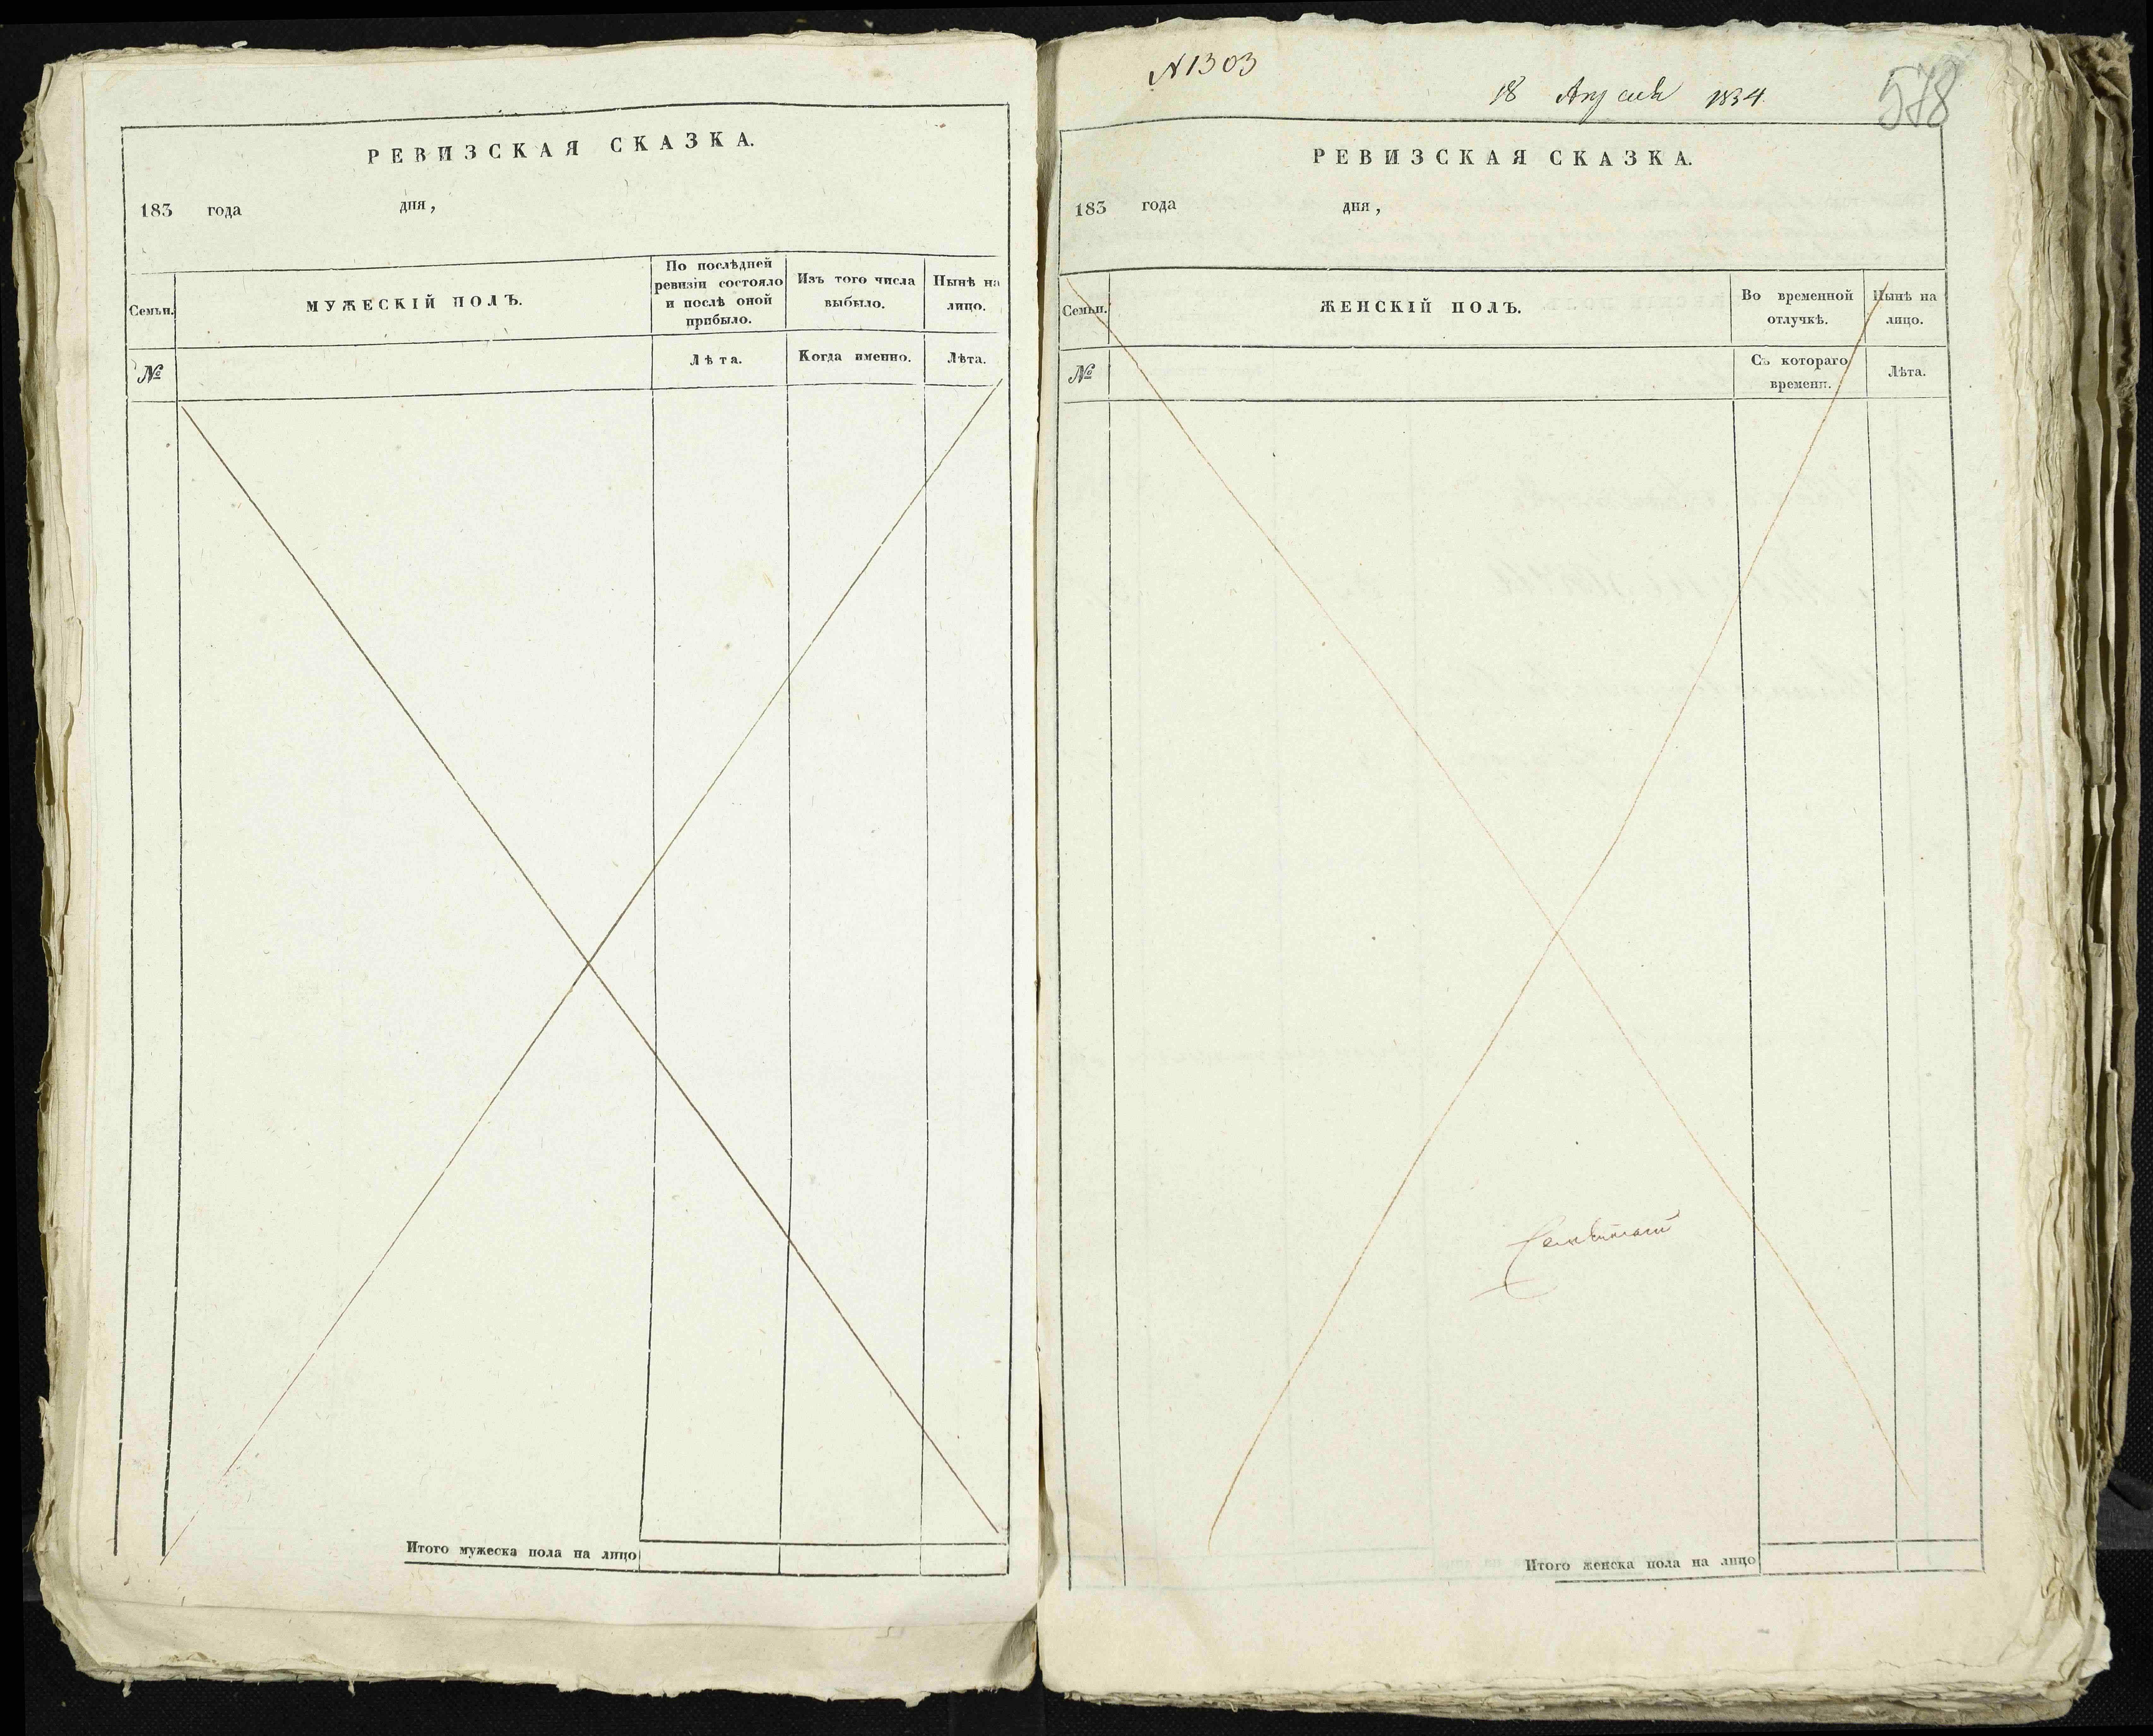 РЕВИЗСКАЯ СКАЗКА.
183 года дня,
Семьи.
МУЖЕСКІЙ ПОЛЪ.
По послѣдней
ревизіи состояло
и послѣ оной
прибыло.
Изъ того числа
выбыло.
Нынѣ на
лицо.
№
Лѣта.
Когда именно.
Лѣта.
Итого мужеска пола на лицо
N 1303
18 Апреля 1834
578
РЕВИЗСКАЯ СКАЗКА.
183 года дня,
Семьи.
ЖЕНСКІЙ ПОЛЪ.
Во временной
отлучкѣ.
Нынѣ на
лицо.
№
Съ котораго
времени.
Лѣта.
Итого женска пола на лицо